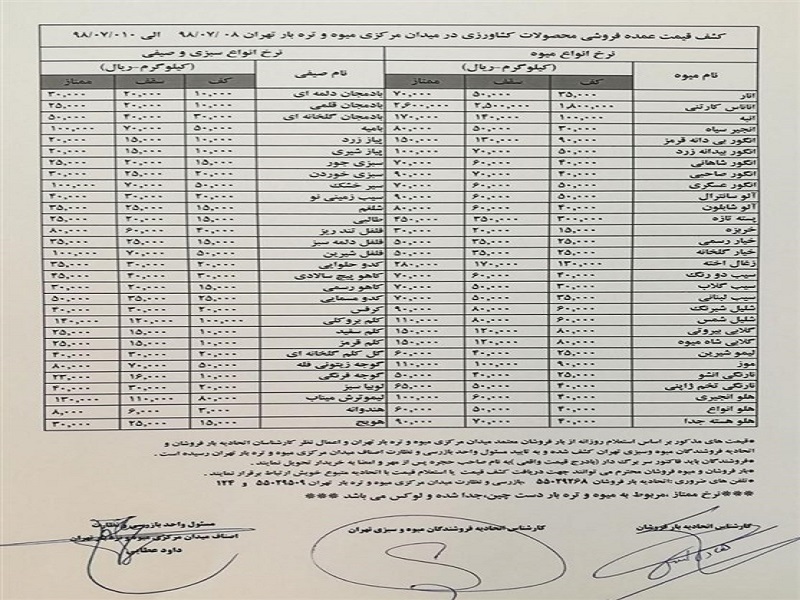 کشف قیمت عمده فروشی محصولات کشاورزی در میدان مرکزی میوه و تره بار تهران ۹۸/۰۷/۰۸ الی ۹۸/۰۷/۰۱۰
نرخ انواع میوه نرخ انواع سبزی و صیفی
نام میوه (کیلوگرم-ریال) نام صیفی (کیلوگرم-ریال)
کف سقف ممتاز کف سقف ممتاز
انار ۳۵,۰۰۰ ۵۰,۰۰۰ ۷۰,۰۰۰ بادمجان دلمه ای ۱۰,۰۰۰ ۲۰,۰۰۰ ۳۰,۰۰۰
آناناس کارتنی ۱,۸۰۰,۰۰۰ ۲,۵۰۰,۰۰۰ ۲,۶۰۰,۰۰۰ بادمجان قلمی ۱۰,۰۰۰ ۲۰,۰۰۰ ۲۵,۰۰۰
انبه ۱۰۰,۰۰۰ ۱۴۰,۰۰۰ ۱۷۰,۰۰۰ بادمجان گلخانه ای ۳۰,۰۰۰ ۴۰,۰۰۰ ۵۰,۰۰۰
انجیر سیاه ۳۰,۰۰۰ ۵۰,۰۰۰ ۸۰,۰۰۰ بامیه ۵۰,۰۰۰ ۷۰,۰۰۰ ۱۰۰,۰۰۰
انگور بی دانه قرمز ۹۰,۰۰۰ ۱۳۰,۰۰۰ ۱۵۰,۰۰۰ پیاز زرد ۱۰,۰۰۰ ۱۵,۰۰۰ ۲۰,۰۰۰
انگور بیدانه زرد ۵۰,۰۰۰ ۷۰,۰۰۰ ۱۰۰,۰۰۰ پیاز شیری ۱۰,۰۰۰ ۱۵,۰۰۰ ۲۰,۰۰۰
انگور شاهانی ۴۰,۰۰۰ ۶۰,۰۰۰ ۷۰,۰۰۰ سبزی جور ۱۵,۰۰۰ ۲۰,۰۰۰ ۲۵,۰۰۰
انگور صاحبی ۴۰,۰۰۰ ۷۰,۰۰۰ ۹۰,۰۰۰ سبزی خوردن ۲۰,۰۰۰ ۲۵,۰۰۰ ۳۰,۰۰۰
انگور عسکری ۵۰,۰۰۰ ۶۰,۰۰۰ ۷۰,۰۰۰ سیر خشک ۵۰,۰۰۰ ۷۰,۰۰۰ ۱۰۰,۰۰۰
آلو سانترال ۵۰,۰۰۰ ۶۰,۰۰۰ ۹۰,۰۰۰ سیب زمینی نو ۲۰,۰۰۰ ۳۰,۰۰۰ ۴۰,۰۰۰
آلو شابلون ۴۰,۰۰۰ ۶۰,۰۰۰ ۸۰,۰۰۰ شلغم ۱۵,۰۰۰ ۲۵,۰۰۰ ۳۵,۰۰۰
پسته تازه ۳۰۰,۰۰۰ ۳۵۰,۰۰۰ طالبی ۱۵,۰۰۰ ۲۰,۰۰۰ ۲۵,۰۰۰
خربزه ۱۵,۰۰۰ ۲۰,۰۰۰ ۳۰,۰۰۰ فلفل تند ریز ۴۰,۰۰۰ ۶۰,۰۰۰ ۸۰,۰۰۰
خیار رسمی ۲۵,۰۰۰ ۳۵,۰۰۰ ۵۰,۰۰۰ فلفل دلمه سبز ۱۵,۰۰۰ ۲۵,۰۰۰ ۳۵,۰۰۰
خیار گلخانه ۲۵,۰۰۰ ۳۵,۰۰۰ ۵۰,۰۰۰ فلفل شیرین ۵۰,۰۰۰ ۷۰,۰۰۰ ۱۰۰,۰۰۰
زغال اخته ۱۳۰,۰۰۰ ۱۷۰,۰۰۰ ۲۸۰,۰۰۰ کدو حلوایی ۲۰,۰۰۰ ۳۰,۰۰۰ ۳۵,۰۰۰
سیب دو رنگ ۴۰,۰۰۰ ۶۰,۰۰۰ ۷۰,۰۰۰ کاهو پیچ سالادی ۳۰,۰۰۰ ۴۰,۰۰۰ ۴۵,۰۰۰
سیب گلاب ۳۰,۰۰۰ ۵۰,۰۰۰ ۷۰,۰۰۰ کاهو رسمی ۱۵,۰۰۰ ۲۰,۰۰۰ ۳۰,۰۰۰
سیب لبنانی ۳۵,۰۰۰ ۵۰,۰۰۰ ۷۰,۰۰۰ کدو مسمایی ۲۵,۰۰۰ ۳۵,۰۰۰ ۵۰,۰۰۰
شلیل شبرنگ ۶۰,۰۰۰ ۸۰,۰۰۰ ۹۰,۰۰۰ کرفس ۲۰,۰۰۰ ۳۰,۰۰۰ ۴۰,۰۰۰
شلیل شمس ۶۰,۰۰۰ ۸۰,۰۰۰ ۱۱۰,۰۰۰ کلم بروکلی ۱۰۰,۰۰۰ ۱۲۰,۰۰۰ ۱۴۰,۰۰۰
گلابی بیروتی ۸۰,۰۰۰ ۱۲۰,۰۰۰ ۱۵۰,۰۰۰ کلم سفید ۱۰,۰۰۰ ۱۵,۰۰۰ ۲۵,۰۰۰
گلابی شاه میوه ۸۰,۰۰۰ ۱۲۰,۰۰۰ ۱۵۰,۰۰۰ کلم قرمز ۱۰,۰۰۰ ۱۵,۰۰۰ ۲۵,۰۰۰
لیمو شیرین ۲۵,۰۰۰ ۴۰,۰۰۰ ۶۰,۰۰۰ گل کلم گلخانه ای ۲۰,۰۰۰ ۳۰,۰۰۰ ۴۰,۰۰۰
موز ۹۰,۰۰۰ ۱۰۰,۰۰۰ ۱۱۰,۰۰۰ گوجه زیتونی فله ۵۰,۰۰۰ ۷۰,۰۰۰ ۸۰,۰۰۰
نارنگی انشو ۲۵,۰۰۰ ۴۰,۰۰۰ ۵۰,۰۰۰ گوجه فرنگی ۱۰,۰۰۰ ۱۶,۰۰۰ ۲۳,۰۰۰
نارنگی تخم ژاپنی ۴۰,۰۰۰ ۵۰,۰۰۰ ۶۵,۰۰۰ لوبیا سبز ۲۰,۰۰۰ ۳۰,۰۰۰ ۴۰,۰۰۰
هلو انجیری ۴۰,۰۰۰ ۶۰,۰۰۰ ۱۰۰,۰۰۰ لیموترش میناب ۸۰,۰۰۰ ۱۱۰,۰۰۰ ۱۳۰,۰۰۰
هلو انواع ۴۰,۰۰۰ ۵۰,۰۰۰ ۶۰,۰۰۰ هندوانه ۳,۰۰۰ ۶,۰۰۰ ۸,۰۰۰
هلو هسته جدا ۴۰,۰۰۰ ۷۰,۰۰۰ ۹۰,۰۰۰ هویج ۱۵,۰۰۰ ۲۵,۰۰۰ ۳۰,۰۰۰
*قیمت های مذکور بر اساس استعلام روزانه از بار فروشان معتمد میدان مرکزی میوه و تره بار تهران و اعمال نظر کارشناسان اتحادیه بار فروشان و
اتحادیه فروشندگان میوه و سبزی تهران کشف شده و به تایید مسئول واحد بازرسی و نظارت اصناف میدان مرکزی میوه و تره بار تهران رسیده است .
*فروشندگان باید فاکتور سر برگ دار (بادرج قیمت واقعی)به نام صاحب حجره پس از مهر و امضا به خریدار تحویل نمایند .
*بار فروشان و میوه فروشان محترم می توانند جهت دریافت کشف قیمت یا استعلام قیمت با اتحادیه متبوع خویش ارتباط برقرار نمایند .
*تلفن های ضروری :اتحادیه بار فروشان ۵۵۰۴۹۲۶۸ بازرسی و نظارت میدان مرکزی میوه و تره بار تهران ۵۵۰۲۹۵۰۹ و ۱۲۴
***نرخ ممتاز ،مربوط به میوه و تره بار دست چین،جدا شده و لوکس می باشد ***
کارشناس اتحادیه بار فروشان
کارشناس اتحادیه فروشندگان میوه و سبزی تهران
مسئول واحد بازرسی و نظارت
اصناف میدان مرکزی میوه و تره بار تهران
داود عطایی